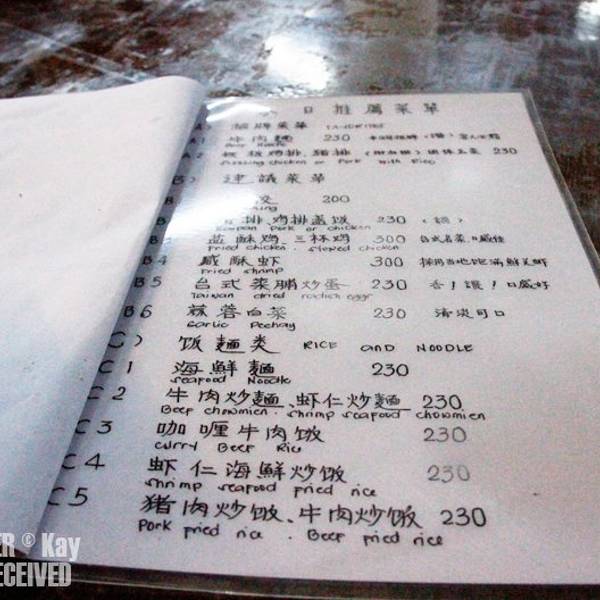 日推薦菜單
招牌菜單
A1 牛肉麵 230
Beef Noodle
A2 鸡排,豬排 230
Sizzling chicken or Pork with Rice
B) 建議菜單
200
排、鸡排盖饭 230
Pork or chicken
盐酥鸡,三杯鸡 300 台式名菜.口感佳
Fried chicken. stewed chicken
B4 咸酥虾 300
Fried shrimp
B5 台式菜脯炒蛋 230 香!讚!口感好
Taiwan dried radish eggs
B6 蒜蓉白菜 230 清淡可口
Garlic Pechay
C) 饭麵类 RICE and NOODLE
C1 海鮮麵 230
seafood Noodle
C2 牛肉炒麵、虾仁炒麵 230
Beef chowmien. shrimp seafood chowmien
C3 咖喱牛肉饭 230
curry Beef Rice
C4 虾仁海鮮炒饭 230
shrimp seafood fried rice
C5 猪肉炒饭、牛肉炒饭 230
Pork fried rice. Beef fried rice
ER © Kay
ECEIVED